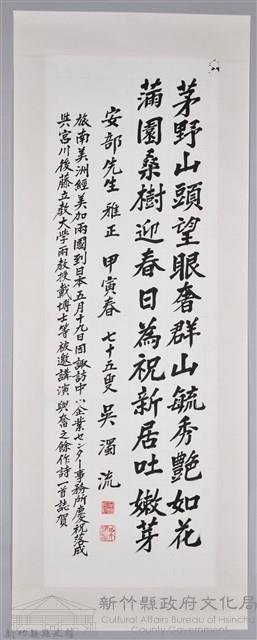 茅野山頭望眼奢群山毓秀艷如花
滿園桑樹迎春日為祝新居吐嫩芽
安部先生 雅正 甲寅春 七十五叟 吳濁流
旅南美洲經美加兩國到日本五月十九日同諏訪中小企業センター事務所慶祝落成
與宮川後藤立教大学兩教授戴博士等被邀講演興奮之餘作詩一首誌賀
新竹縣政府文化局
Cultural Affairs Bureau of Hsinchu
County Government